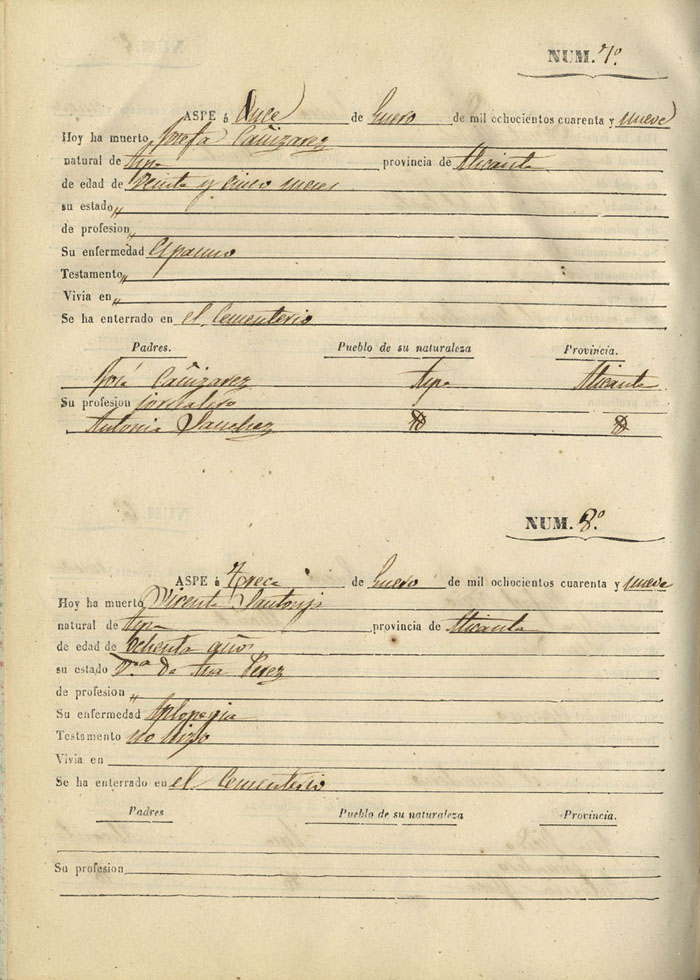 NUM. 7º
ASPE á Doce de Enero de mil ochocientos cuarenta y nueve
Hoy ha muerto Josefa Cañizarez
natural de Aspe provincia de Alicante
de edad de veinte y cinco meses
su estado „
de profesion „
Su enfermedad Espasmo
Testamento „
Vivia en „
Se ha enterrado en el Cementerio
Padres. Pueblo de su naturaleza Provincia.
José Cañizarez Aspe Alicante
Su profesion jornalero
Antonia Sanchez
NUM. 8º
ASPE á Trece de Enero de mil ochocientos cuarenta y nueve
Hoy ha muerto Vicenta Santonja
natural de Aspe provincia de Alicante
de edad de Ochenta años
su estado Vª de Perez
de profesion „
Su enfermedad Aplopegia
Testamento no hizo
Vivia en
Se ha enterrado en el Cementerio
Padres Pueblo de su naturaleza Provincia.
Su profesion